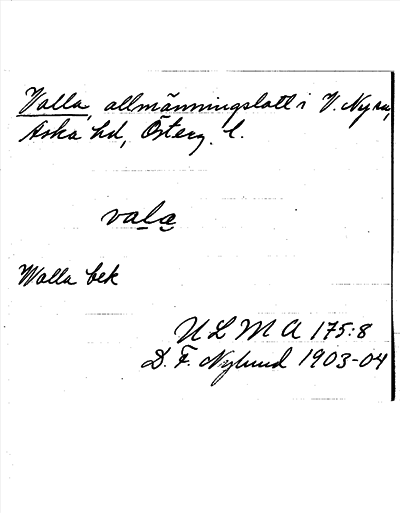 Valla, allmänningslott i V. Ny sn,
Aska hd, Österg. l.
vala
Walla bek
U L M A 175:8
D. F. Nylund 1903-04